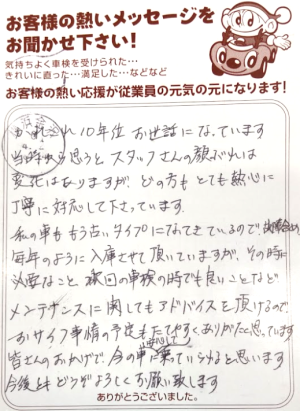 お客様の熱いメッセージを
お聞かせ下さい!
気持ちよく車検を受けられた…
きれいに直った…満足した…などなど
お客様の熱い応援が従業員の元気の元になります!
かれこれ10年位 お世話になっています
当時から思うと スタッフさんの顔ぶれは
変化はありますが、どの方も とても熱心に
丁寧に対応して下さっています。
私の車も もう古いタイプになってきているので
毎年のように入庫させて頂いていますが、その時に
必要なこと 次回の車検の時でも良いことなど
メンテナンスに関してもアドバイスを頂けるので
おサイフ事情の予定もたてやすくありがたいと思っています
皆さんのおかげで、今の車に安心して乗っていられると思います
今後とも どうぞよろしくお願い致します
ありがとうございました。